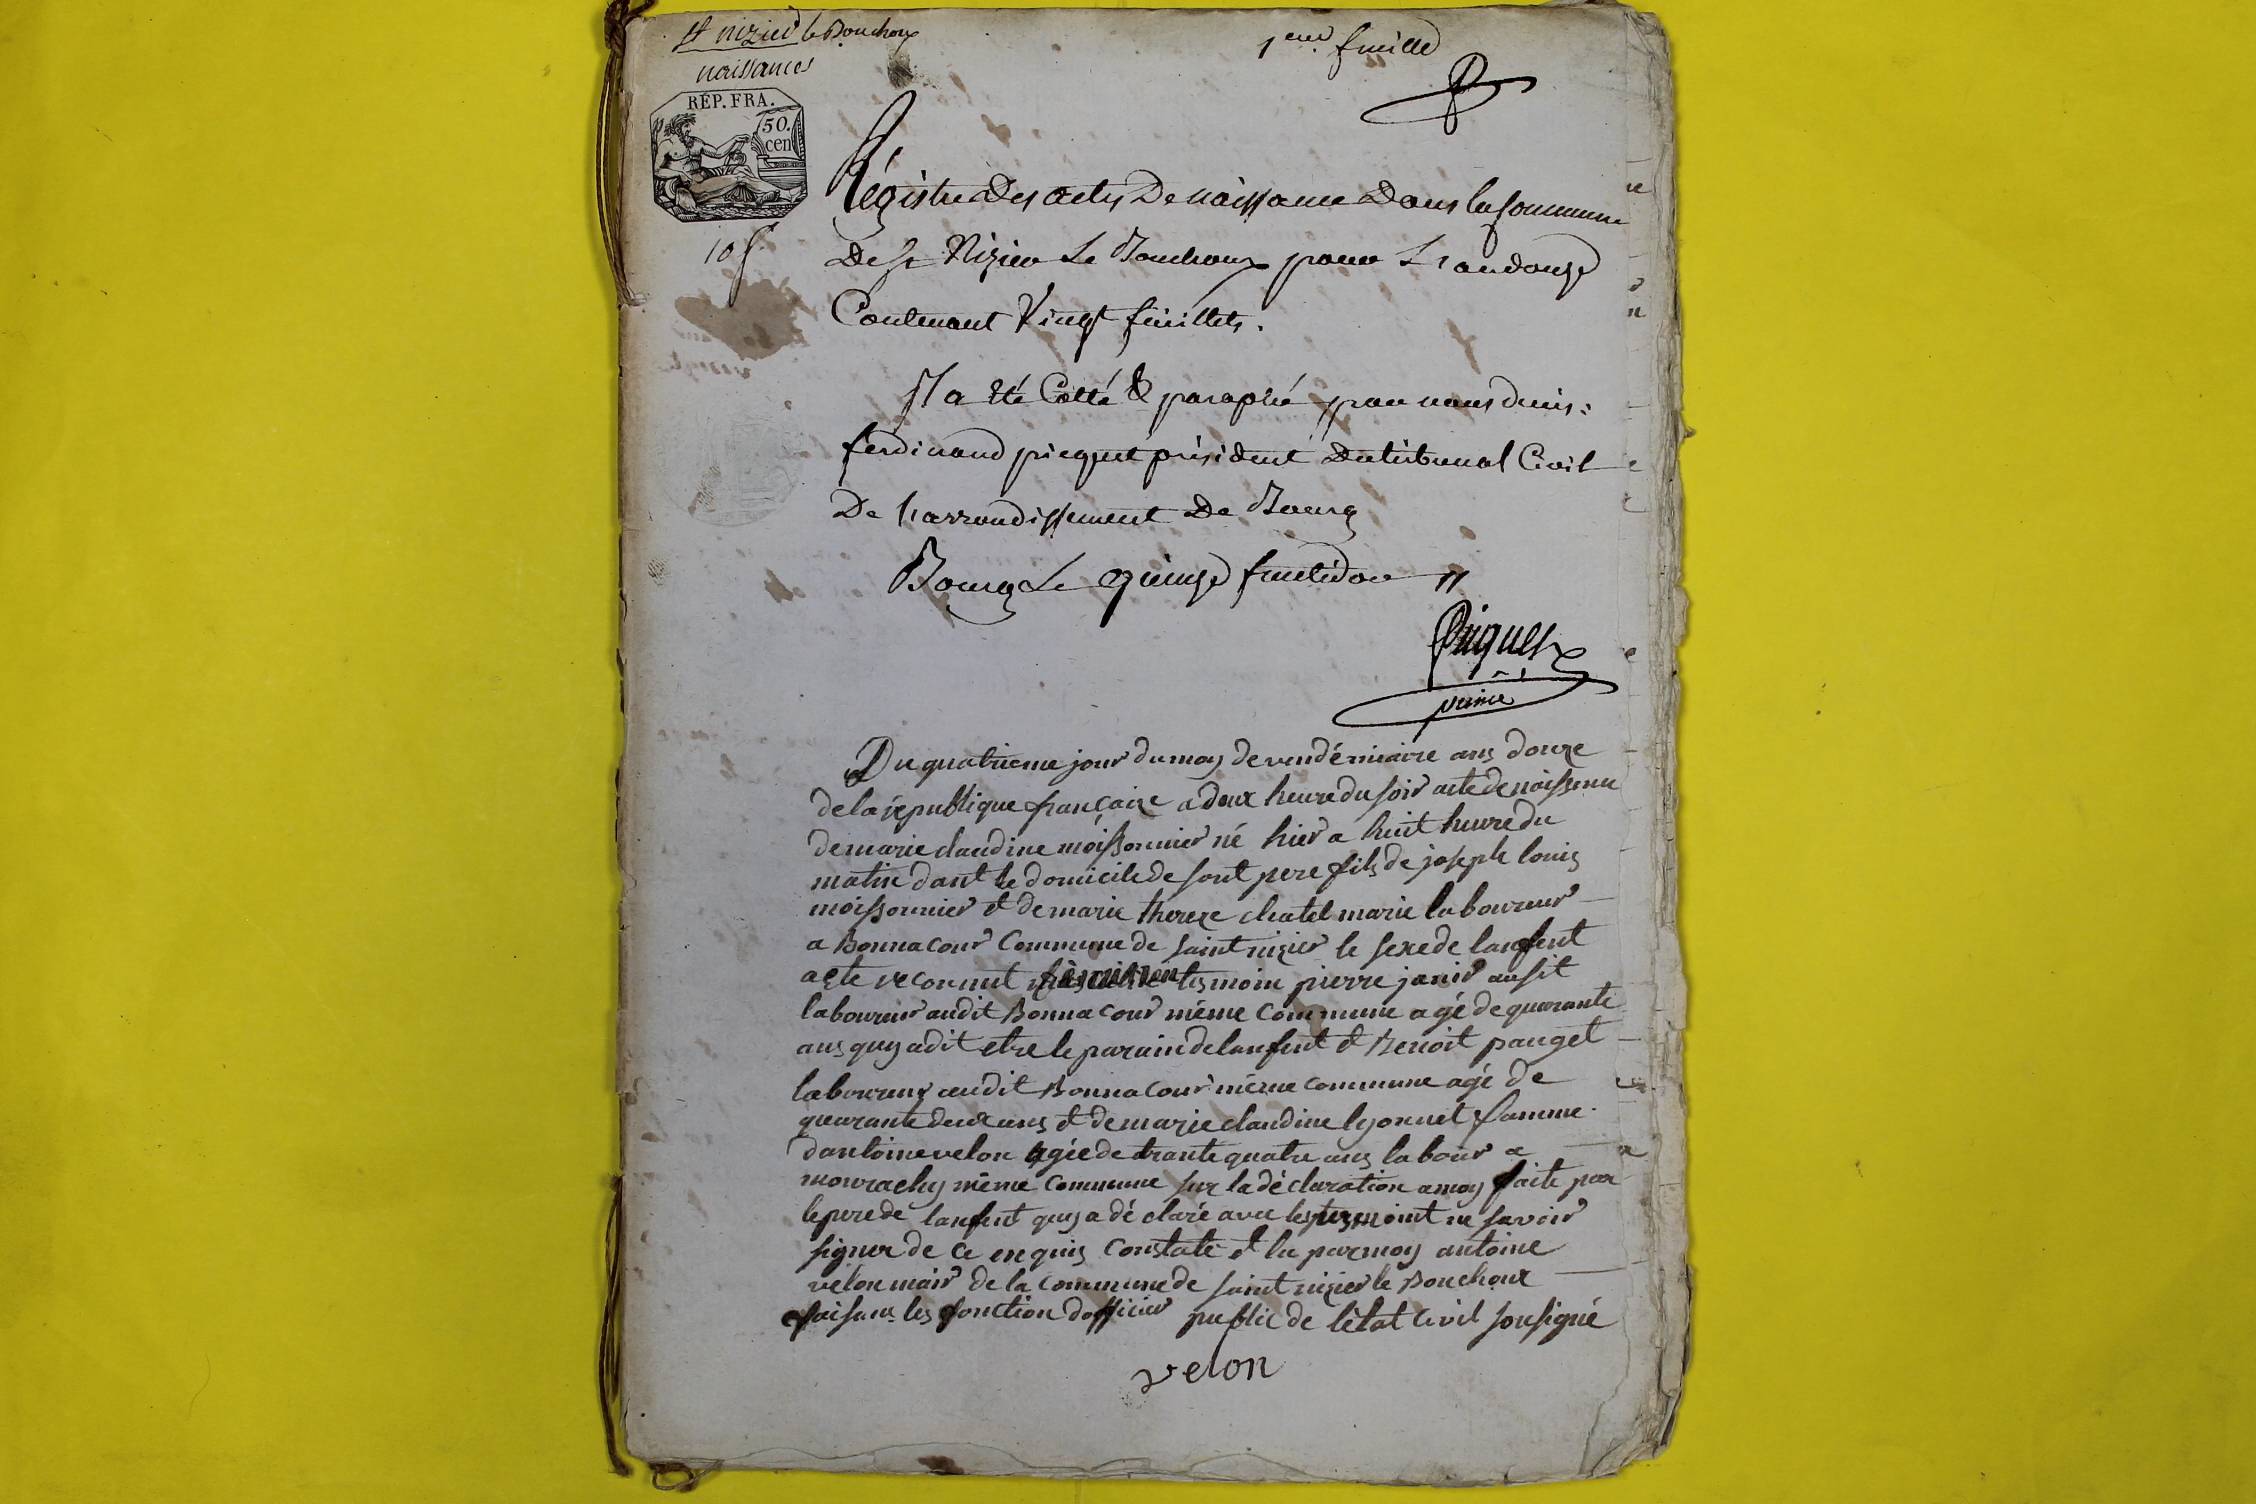 St nizier le Bouchoux
1ere feuille
naissances
REP. FRA.
50.
cen
Régistre Des actes De naissance Dans la Commune
De St Nizier Le Bouchoux pour L'an douze
Contenant Vingt feuillets.
Il a été Cotté & paraphé par nous denis
ferdinand picquet président Du tribunal Civil
De l'arrondissement De Bourg
Bourg Le quinze fructidor 11
Piquet
Du quatrieme jour du moy de vendémiaire ans douze
de la republique française a deux heure du soir acte de naissenu
de marie claudine moissonnier né hier a huit heure du
matin dant le domicile de sont pere fils de joseph louis
moissonnier et de marie therexe chatel marie laboureur
a Bonnacour Commune de saint nizier le sexe de lanfent
a ete reconnut feminin tesmoin pierre janir ausit
laboureur audit Bonnacour même Commune agé de quarante
ans quy a dit etre le parain de lanfent et Benoit pauget
laboureur audit Bonnacour même commune agé de
quarante deux ans et de marie claudine lyonnet famme
dantoine velon agée de trante quatre ans labour a
mourachy même Commune sur la déclaration a moy faite par
le pere de lanfent quy a dé claré avec les tesmoint ne savoir
signer de ce enquis Constate et lu par moy antoine
velon mair de la Commune de saint nizier le Bouchoux
faisans les fonction dofficier public de létat civil sousigné
velon